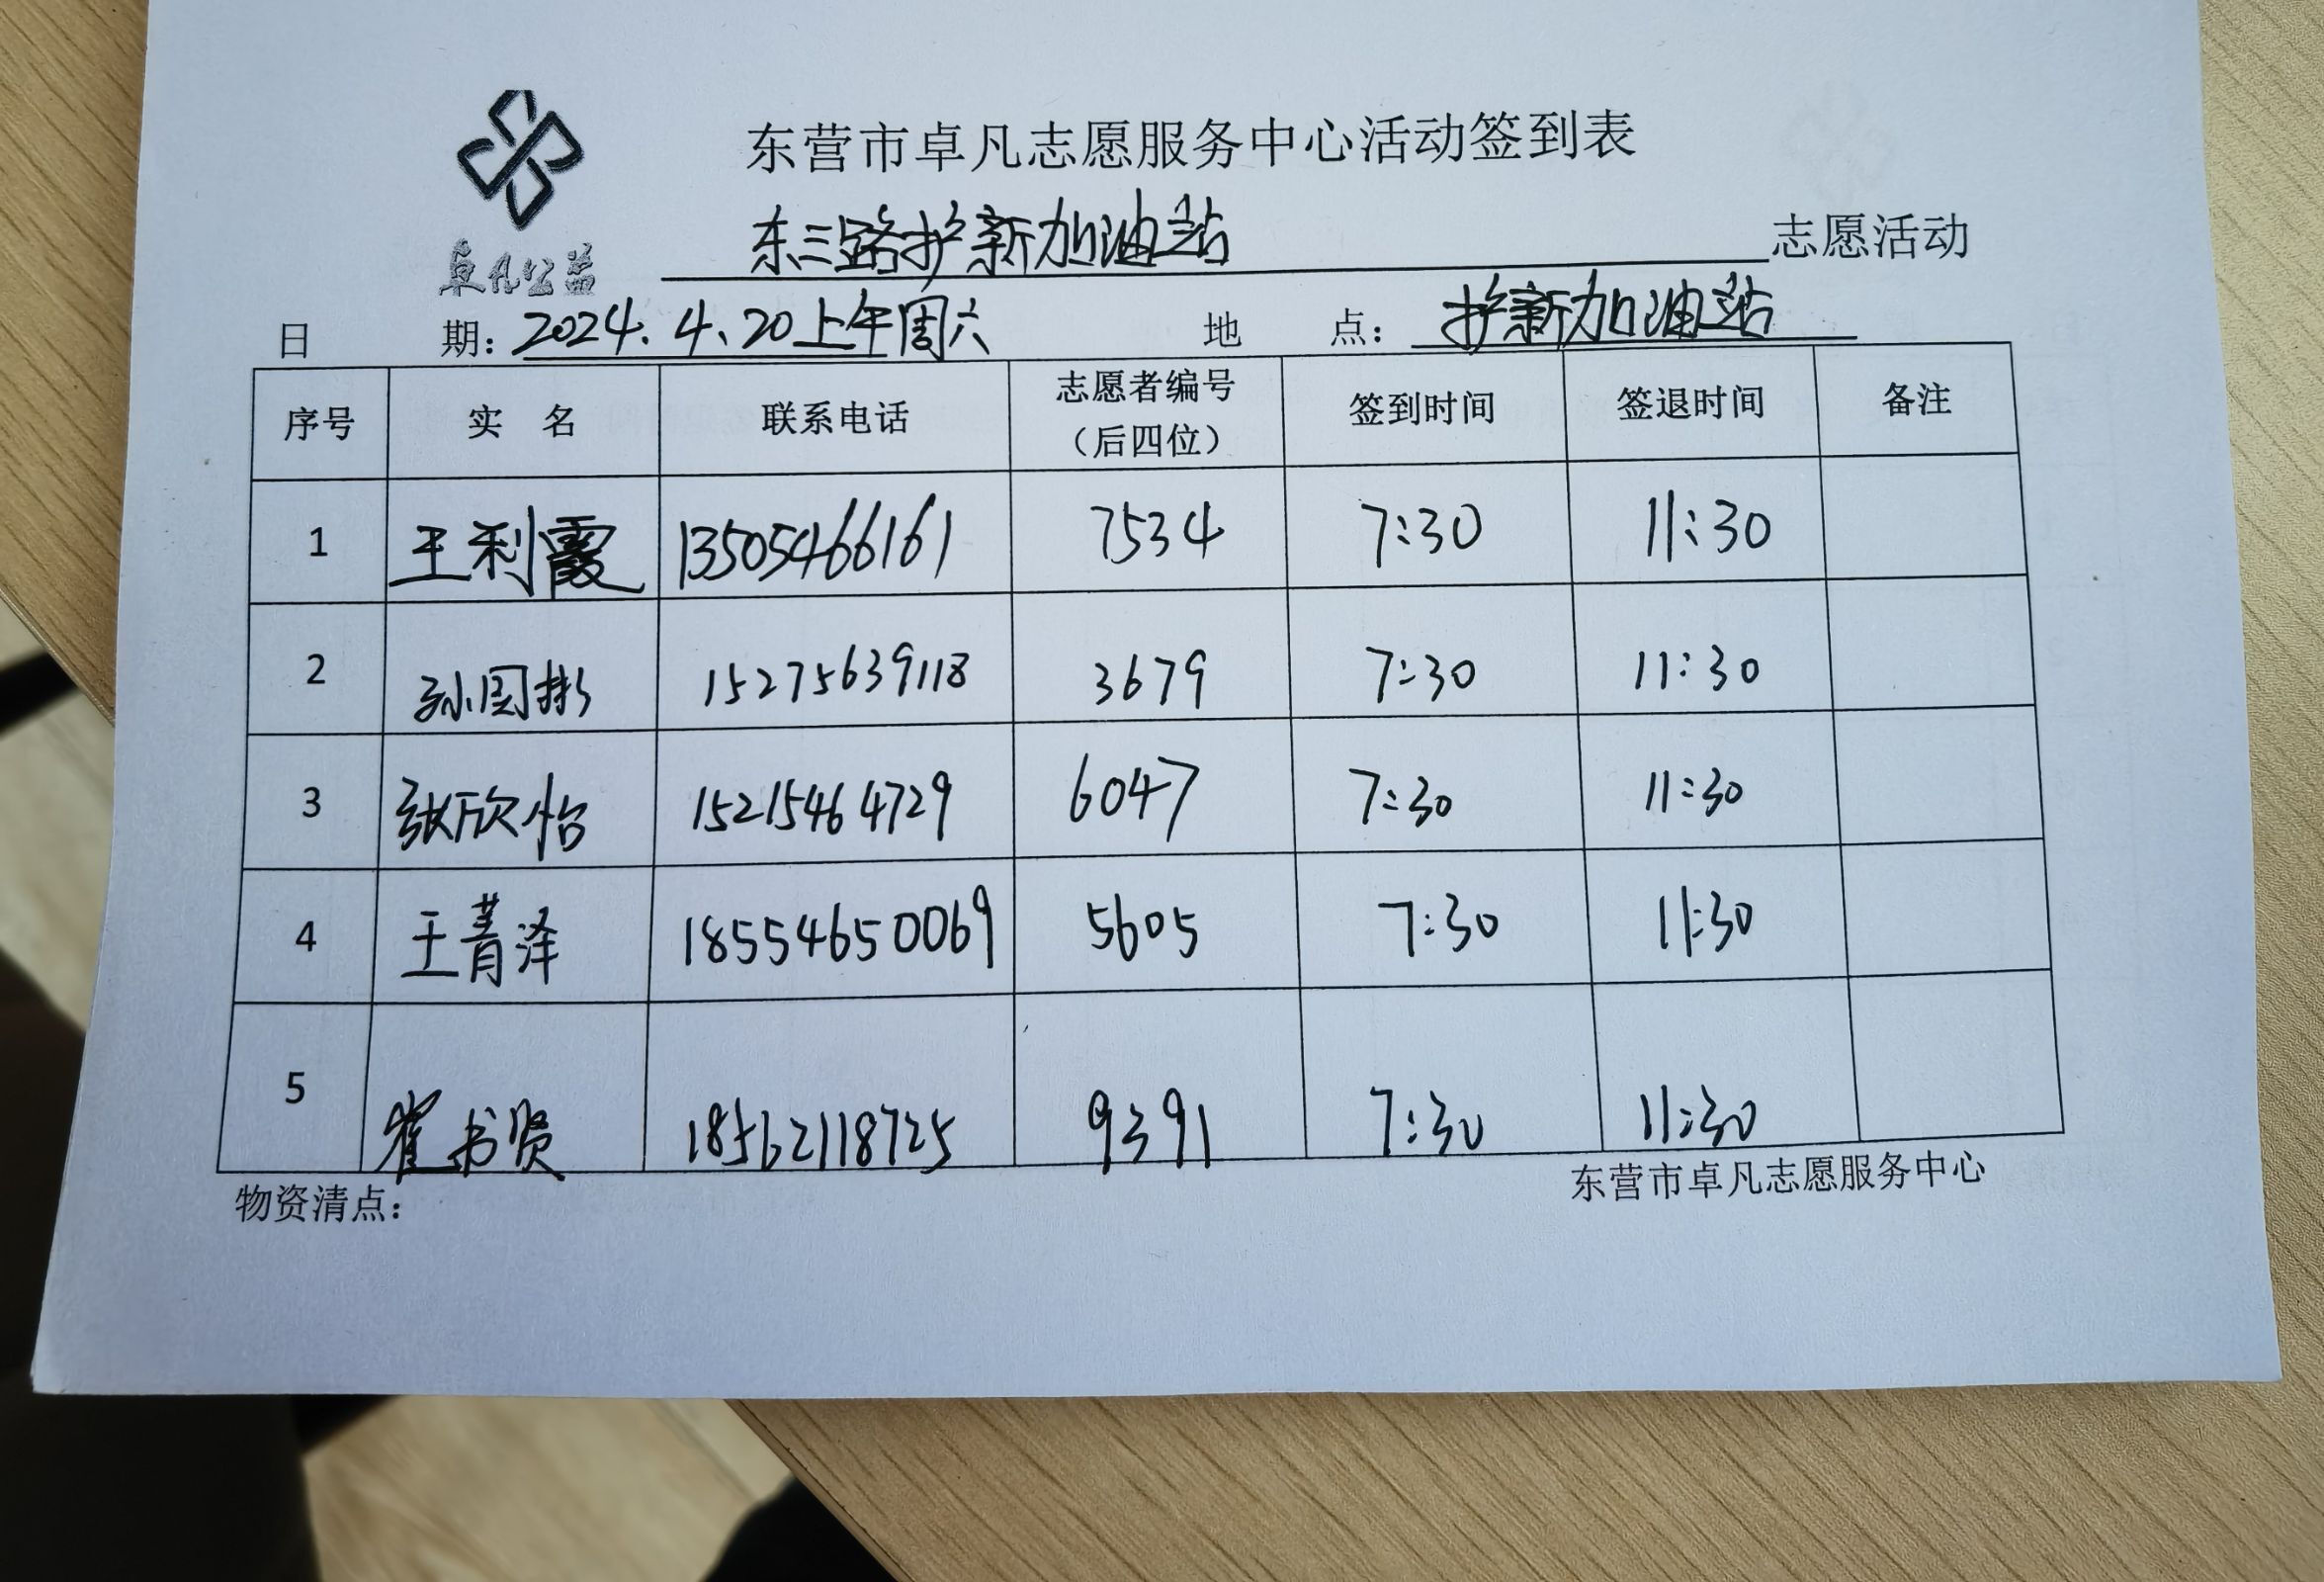 东营市卓凡志愿服务中心活动签到表
卓凡公益
东三路护新加油站 志愿活动
日 期：2024.4、20上午周六 地 点：护新加油站
序号 实 名 联系电话 志愿者编号（后四位） 签到时间 签退时间 备注
1 王利霞 13505466161 7534 7:30 11:30
2 孙国彬 15275639118 3679 7:30 11:30
3 张欣怡 15215464729 6047 7:30 11:30
4 王菁泽 18554650069 5605 7:30 11:30
5 崔书贤 18562118725 9391 7:30 11:30
物资清点： 东营市卓凡志愿服务中心